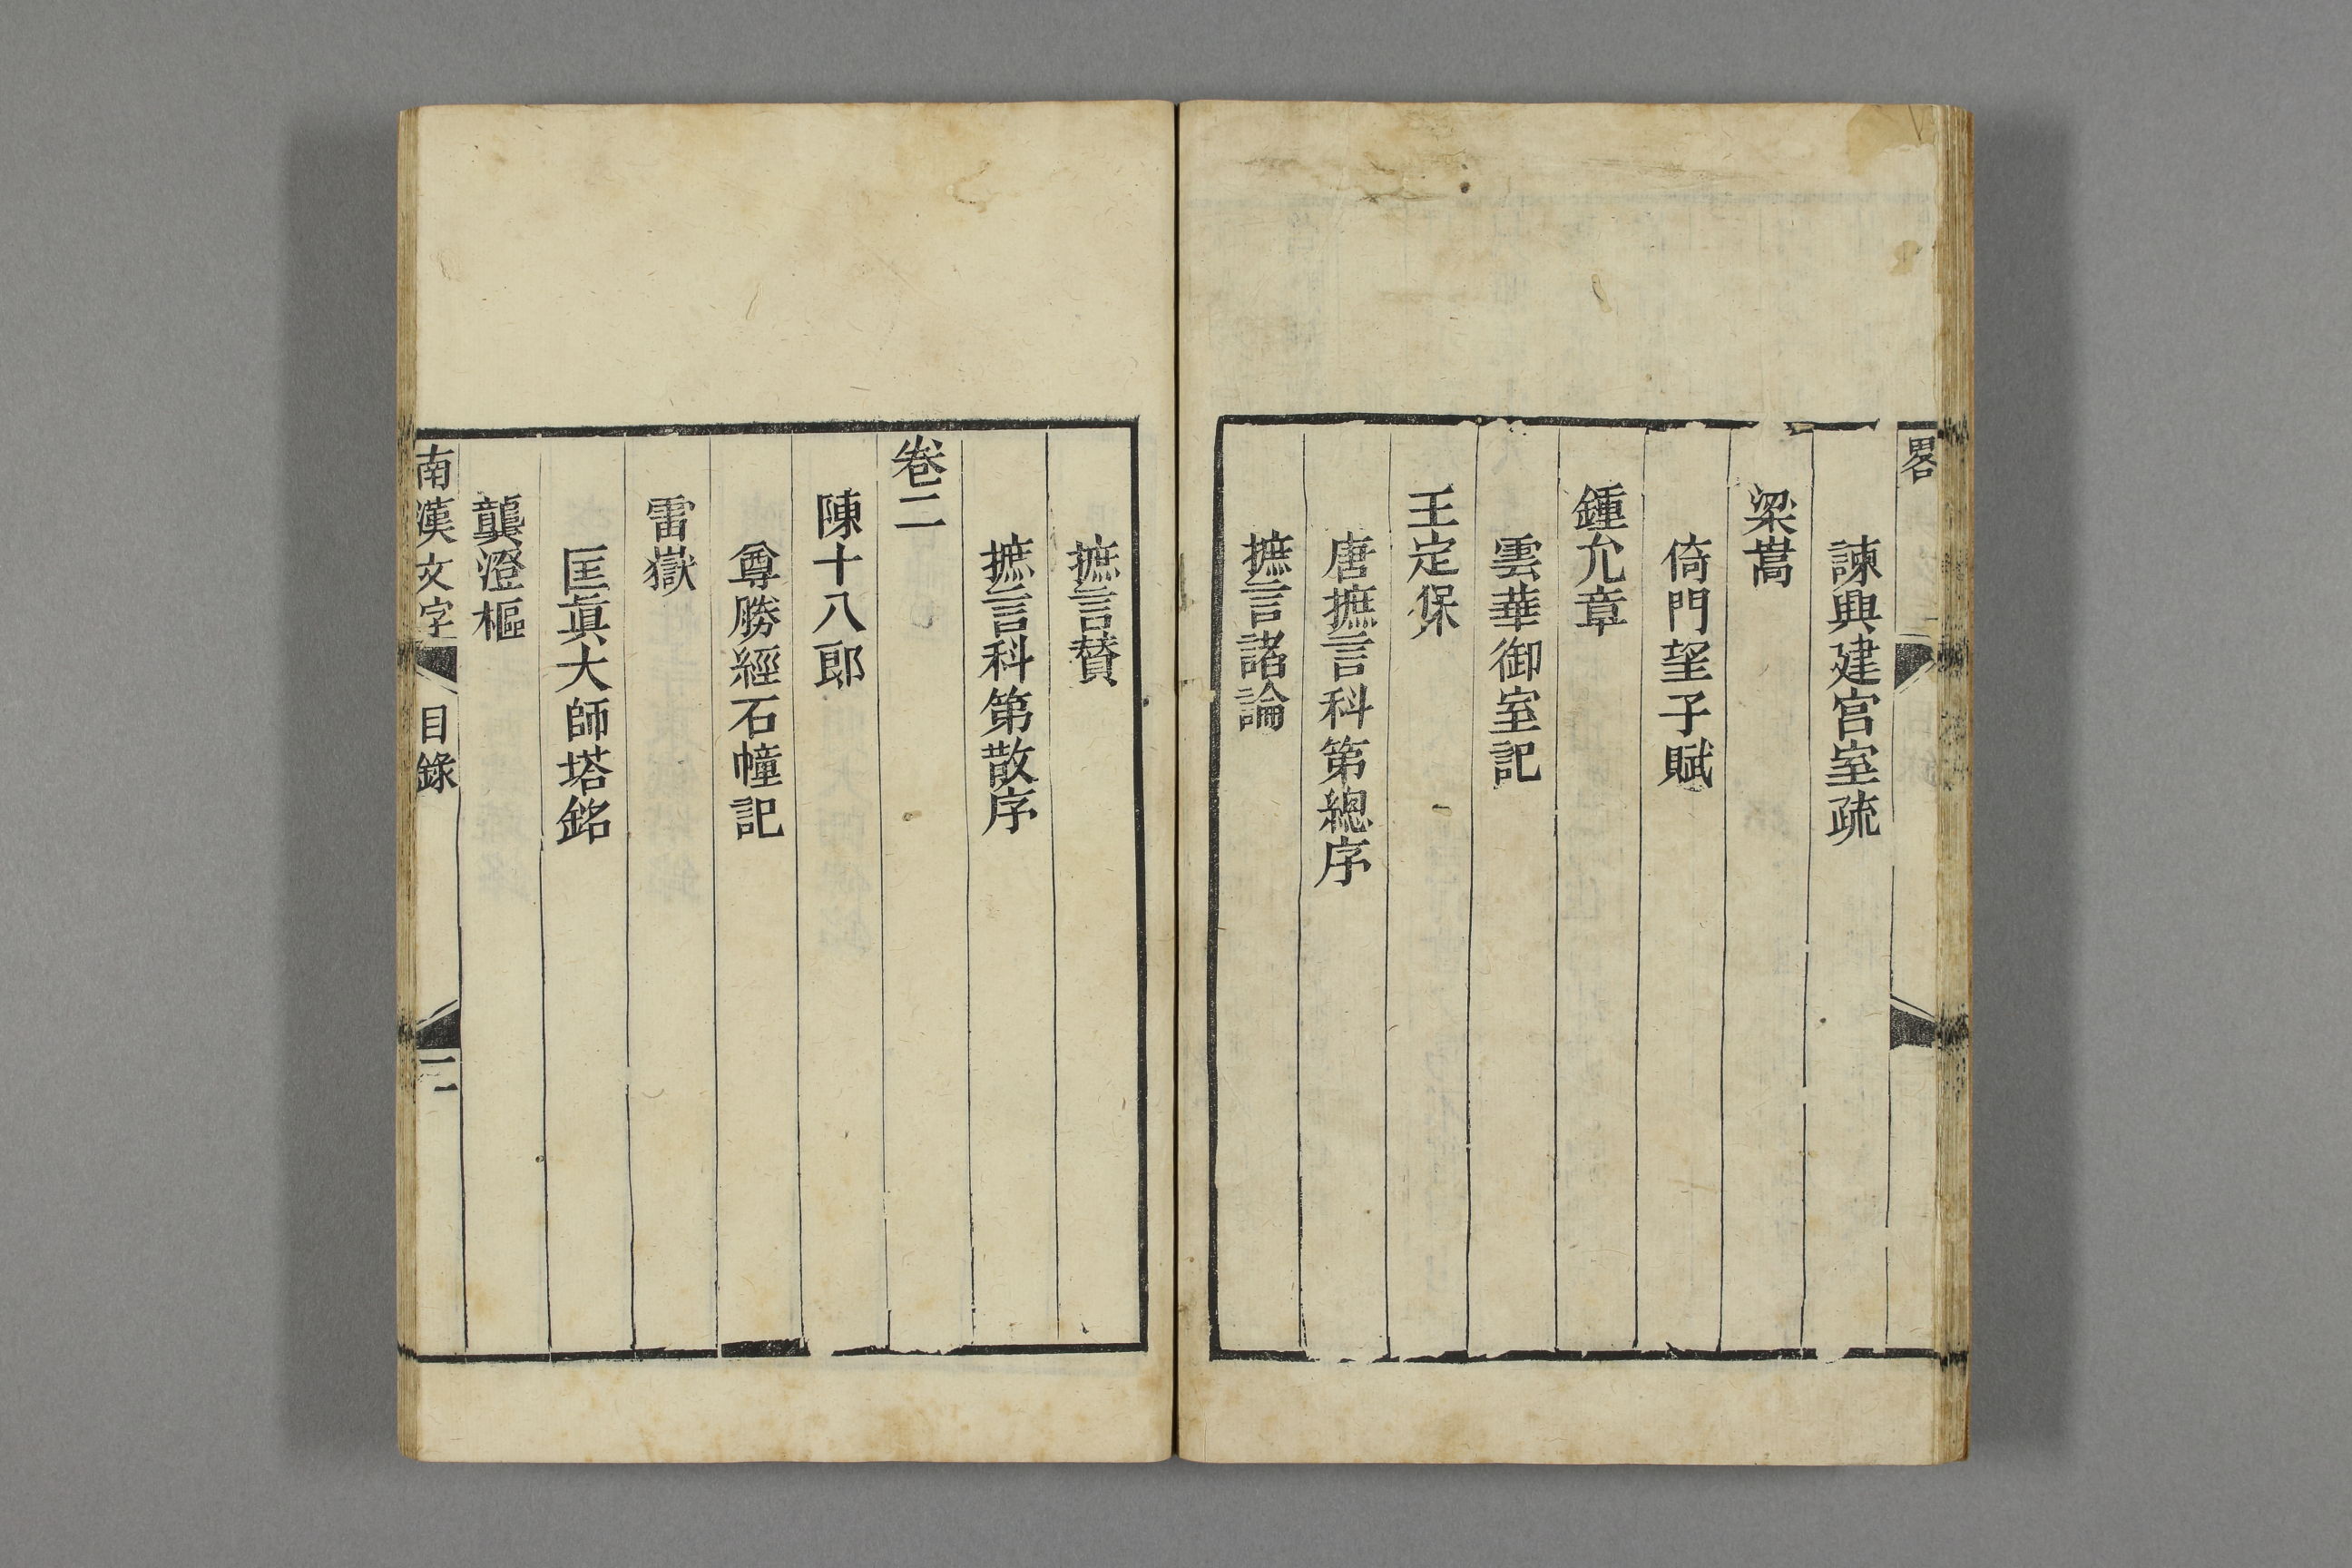 畧
諫興建宫室疏
梁嵩
倚門望子賦
鍾允章
雲華御室記
王定保
唐摭言科第總序
摭言諸論
摭言賛
摭言科第散序
卷二
陳十八郎
尊勝經石幢記
雷嶽
匡眞大師塔銘
龔澄樞
南漢文字
目錄
二